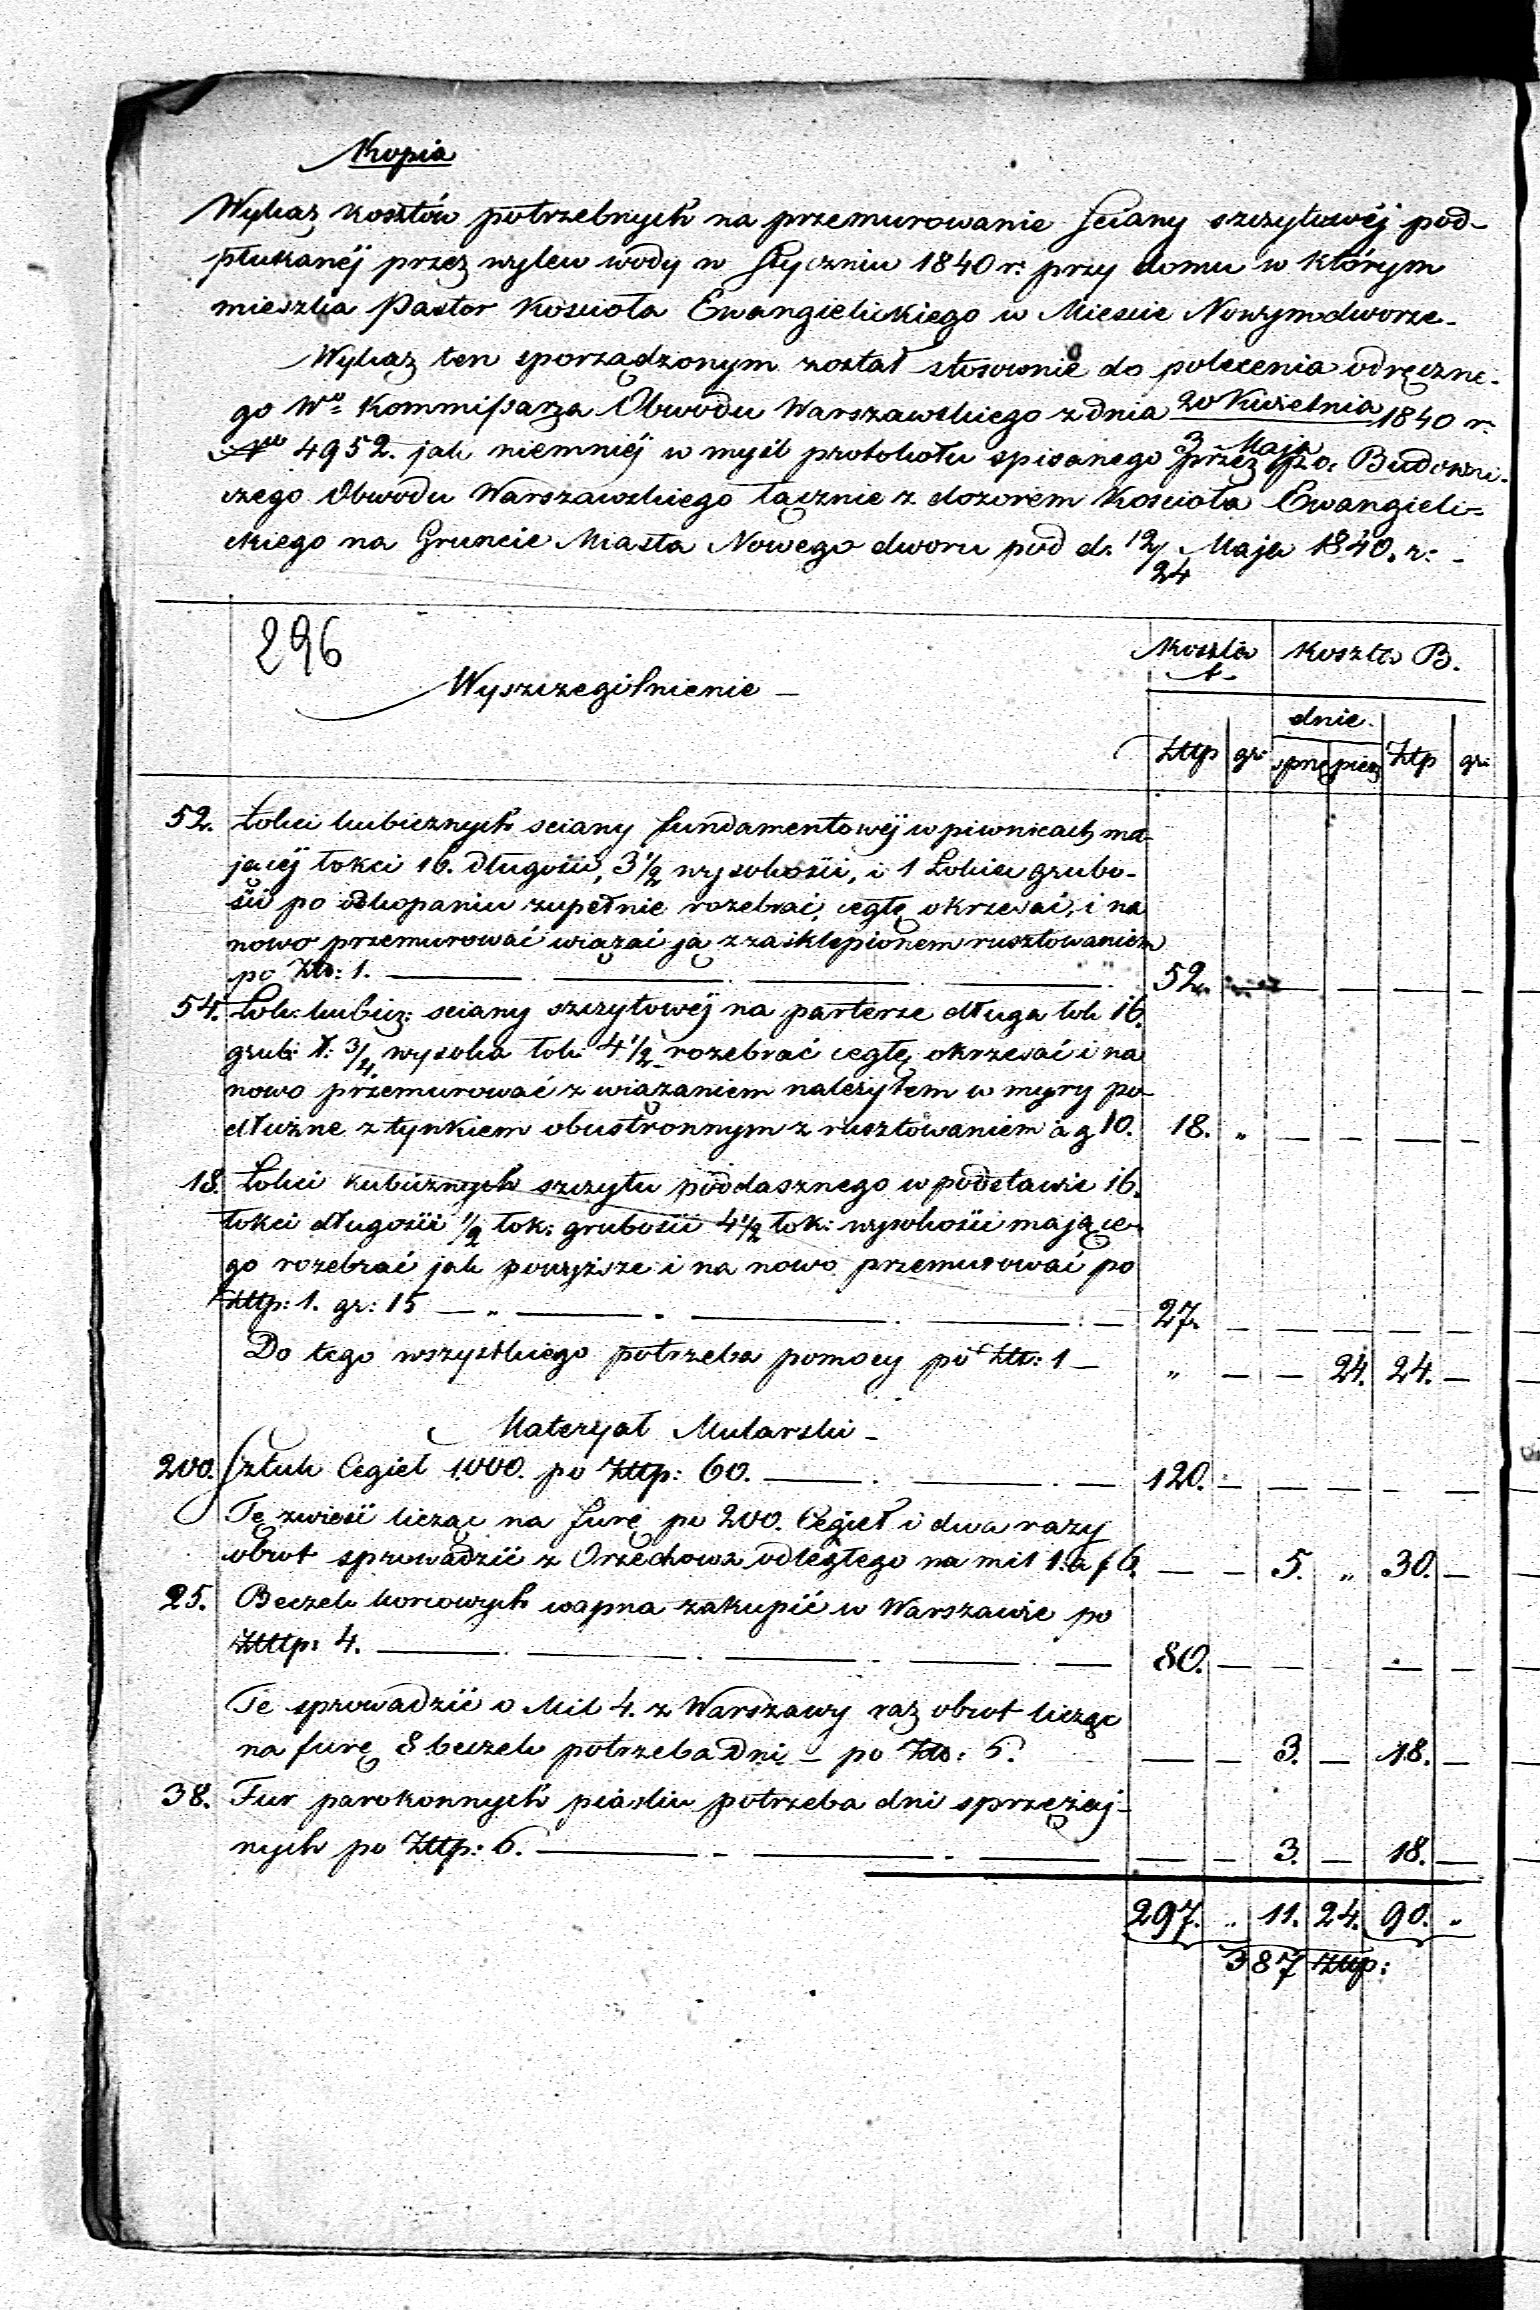 Kopia
Wykaz kosztów potrzebnych na przemurowanie sciany szczytowéj pod-
płukanéj przez wylew wody w Styczniu 1840 r: przy domu w którym
mieszka Pastor Kościoła Ewangielickiego w Miescie Nowymdworze.
Wykaz ten sporządzonym został stosownie do polecenia odręczne-
go Wo Kommissarza Obwodu Warszawskiego z dnia 20 Kwietnia / 3 Maja 1840 r.
No 4952. jak niemniéj w myśl protokołu spisanego przez p.o. Budowni-
czego Obwodu Warszawskiego łącznie z dozorem Kościoła Ewangieli-
ckiego na Gruncie Miasta Nowego dworu pod d. 12/24 Maja 1840. r: -
296
Wyszczególnienie -
Koszta A. Koszta B.
dnie.
Złtp gr: sprzę piesz Złp gr:
52. Łokci kubicznych sciany fundamentowéj w piwnicach ma-
jącéj łokci 16. długości, 3 1/2 wysokości, i 1 Łokieć grubo-
ści po odkopaniu zupełnie rozebrać, cegłę okrzesać, i na
nowo przemurować wiązać ją z zasklepionem rusztowaniem
po Złt: 1. 52.
54. Łok: kubicz: sciany szczytowéj na parterze długa łok 16.
grub: ł: 3/4. wysoka łok. 4 1/2 rozebrać cegłę okrzesać i na
nowo przemurować z wiązaniem należytem w mury po-
dłużne z tynkiem obustronnym z rusztowaniem à g 10. 18. "
18. Łokci kubicznych szczytu poddasznego w podstawie 16.
łokci długości 1/2 łok: grubości 4 1/2 łok: wysokości mające-
go rozebrać jak powyższe i na nowo przemurować po
Złtp: 1. gr: 15 27.
Do tego wszystkiego potrzeba pomocy po Złt: 1 - " 24. 24.
Materyał Mularski -
200. Sztuk Cegieł 1,000. po Złtp: 60. 120.
Te zwieść licząc na furę po 200. Cegieł i dwa razy
obrot sprowadzić z Orzechowa odległego na mil 1. à f 6. 5. " 30.
25. Beczek korcowych wapna zakupić w Warszawie po
Złtp: 4. 80.
Te sprowadzić o Mil 4. z Warszawy raz obrot licząc
na furę 8 beczek potrzeba Dni - po Złt: 6. 3. 18.
38. Fur parokonnych piasku potrzeba dni sprzężaj-
nych po Złtp: 6. 3. 18.
297. " 11. 24. 90. "
387 Złtp: